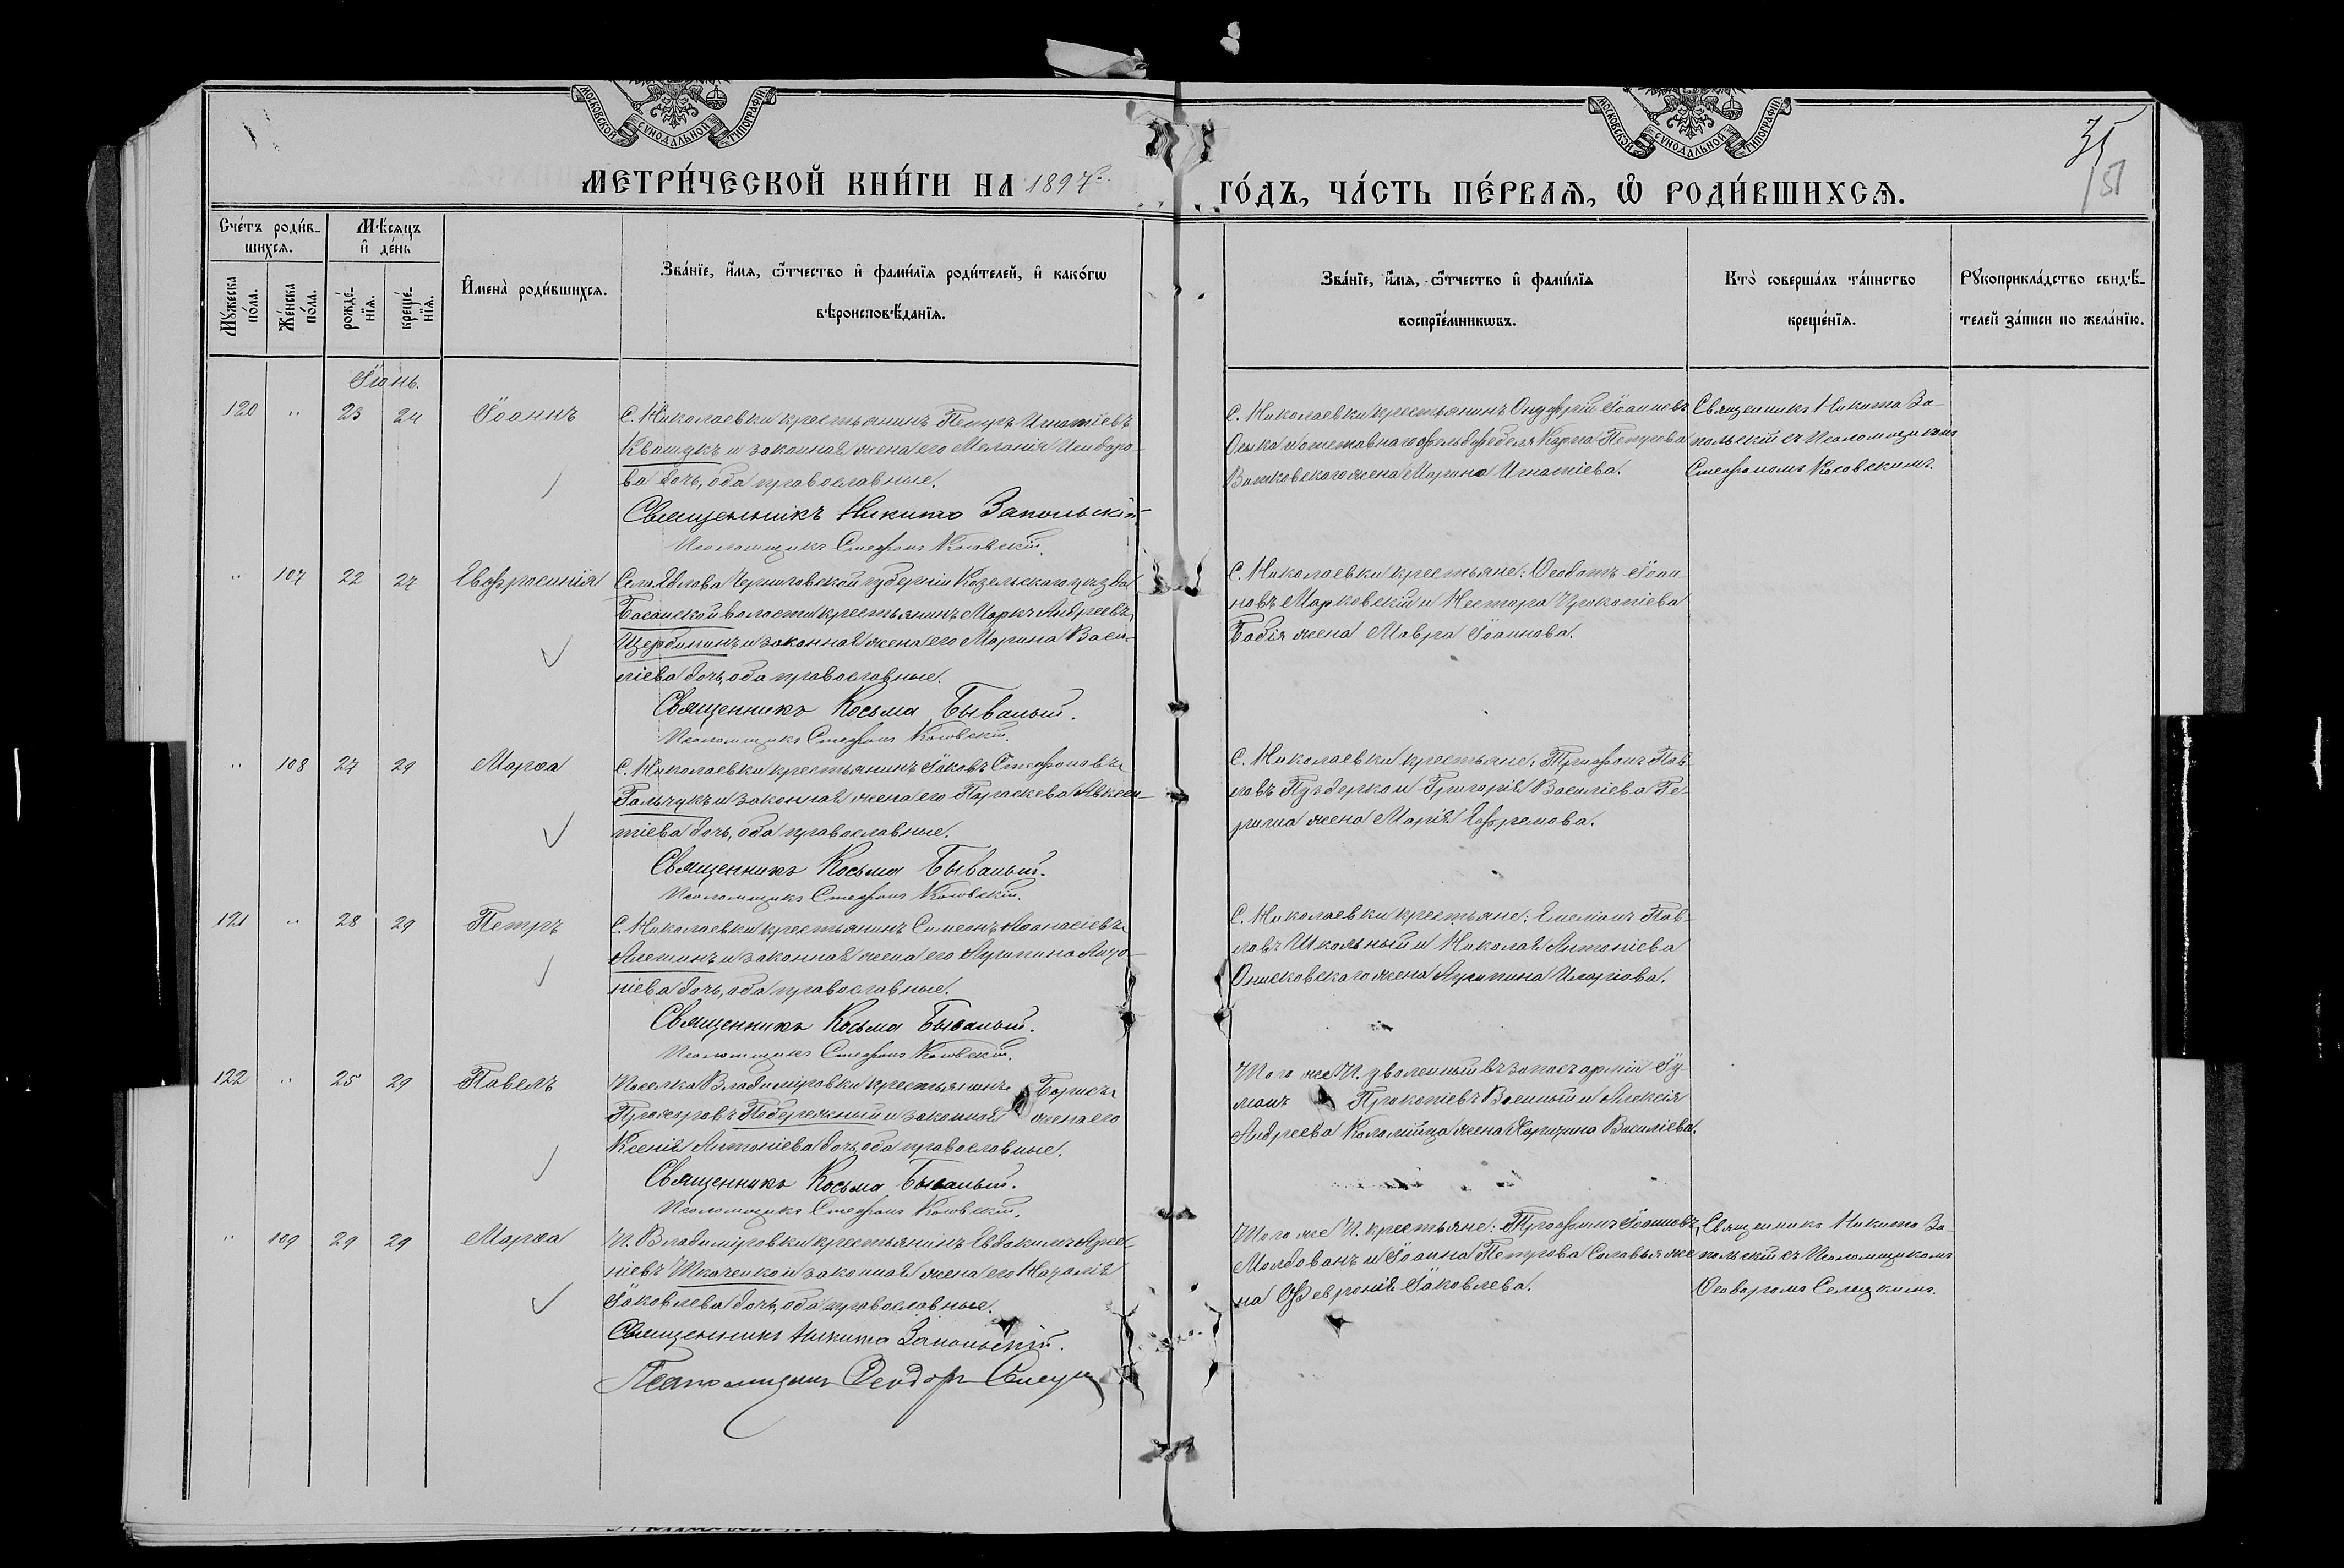 МОСКОВСКОЙ СѴНОДАЛЬНОЙ ТИПОГРАФІИ
МОСКОВСКОЙ СѴНОДАЛЬНОЙ ТИПОГРАФІИ
35
МЕТРИ́ЧЕСКОЙ КНИ́ГИ НА 1897 г.
ГО́ДЪ, ЧА́СТЬ ПЕ́РВАѦ, Ѡ҆ РОДИ́ВШИХСѦ.
Сче́тъ роди́в-
шихсѧ.
Мѣ́сѧцъ
и҆ де́нь
Мꙋ́жеска по́ла.
Же́нска по́ла.
рожде́-нїѧ.
креще́-нїѧ.
И҆мена̀ роди́вшихсѧ.
Зва́нїе, и҆́мѧ, ѻ҆́тчество и҆ фами́лїѧ роди́телей, и҆ како́гѡ
вѣроисповѣ́данїѧ.
Зва́нїе, и҆́мѧ, ѻ҆́тчество и҆ фами́лїѧ
воспрїе́мникѡвъ.
Кто̀ соверша́лъ та́инство
креще́нїѧ.
Рꙋкоприкла́дство свидѣ́-
телей за́писи по жела́нїю.
Іюнь.
120 " 23 24 Іоаннъ
С. Николаевки крестьянинъ Петръ Игнатіевъ
Квашукъ и законная жена его Меланія Исидоро-
ва дочь, оба православные.
Священникъ Никита Запольскій
Псаломщикъ Стефанъ Косовскій.
С. Николаевки крестьянинъ Онуфрій Іоанновъ
и отставнаго фельдфебеля Карпа Петрова
Витковскаго жена Марина Игнатіева.
Священникъ Никита За-
польскій съ Псаломщикомъ
Стефаномъ Косовскимъ.
" 107 22 27 Евфросинія
Села Ядловка Черниговской губерніи Козелецкаго уѣзда
Басанской волости крестьянинъ Маркъ Андреевъ
Щербининъ и законная жена его Марина Васи-
ліева дочь, оба православные.
Священникъ Косьма Бывалый.
Псаломщикъ Стефанъ Косовскій.
С. Николаевки крестьяне: Ѳеодотъ Іоан-
новъ Марковскій и Нестора Прокопіева
Бабія жена Мавра Іоаннова.
" 108 27 29 Марѳа
С. Николаевки крестьянинъ Іаковъ Стефановъ
Гальчукъ и законная жена его Параскева Авксен-
тіева дочь, оба православные.
Священникъ Косьма Бывалый.
Псаломщикъ Стефанъ Косовскій.
С. Николаевки крестьяне: Трифонъ Пав-
ловъ Пундерко и Григорія Василіева Ге-
жена Марія Ефремова.
121 " 28 29 Петръ
С. Николаевки крестьянинъ Симеонъ Аѳанасіевъ
Алетинъ и законная жена его Агрипина
дочь, оба православные.
Священникъ Косьма Бывалый.
Псаломщикъ Стефанъ Косовскій.
С. Николаевки крестьяне: Емеліанъ Пав-
ловъ Школьный и Николая Антоніева
Онисковскаго жена Агрипина Иларіова.
122 " 25 29 Павелъ
Поселка Владиміровки крестьянинъ Борисъ
Прохоровъ Побережный и законная жена его
Ксенія Антоніева дочь, оба православные.
Священникъ Косьма Бывалый.
Псаломщикъ Стефанъ Косовскій.
Того же П. уволенный въ запасъ арміи Гу-
Прокопіевъ Военный и Алексія
Андреева Коломійца жена Харитина Василіева.
" 109 29 29 Марѳа
П. Владиміровки крестьянинъ Евдокимъ Арсе-
ніевъ Ткаченко и законная жена его Наталія
Іаковлева дочь, оба православные.
Священникъ Никита Запольскій.
Псаломщикъ Ѳеодоръ
Того же П. крестьяне: Трофимъ Іоанновъ
Молдованъ и Іоанна Петрова Соловья же-
на Февронія Іаковлева.
Священникъ Никита За-
польскій съ Псаломщикомъ
Ѳеодоромъ Селецкимъ.